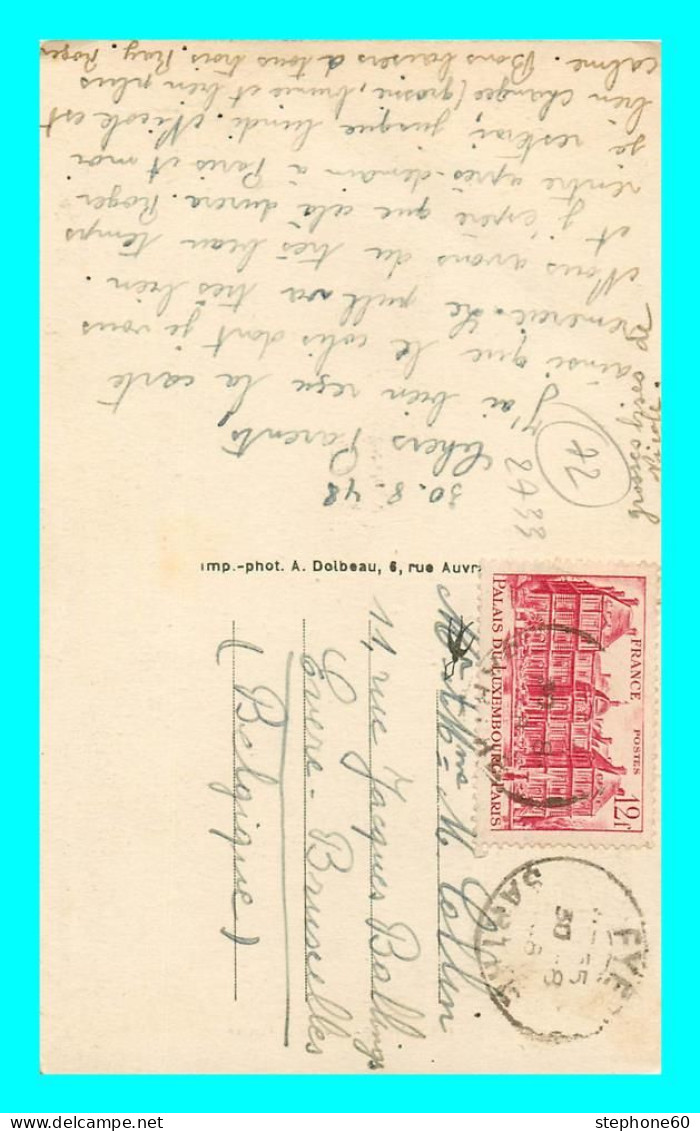 30.8.48
Chers Parents
J'ai bien reçu la carte
ainsi que le colis dont je vous
remercie. Le pull va très bien.
Nous avons du très beau temps
et j'espère que celà durera. Roger
rentre après-demain à Paris et moi
je resterai jusque lundi. Nicole est
bien changée (grosse, brune et bien plus
calme. Bons baisers à tous trois. Ray. Roger
Nicole
22
2433
Imp.-phot. A. Dolbeau, 6, rue Auvr
M. Collin
11, rue Jacques Ballings
Evere-Bruxelles
(Belgique)
FRANCE POSTES
12f
PALAIS DU LUXEMBOURG PARIS
FYE
30 8
SARTHE
stephone60@delcampe.net